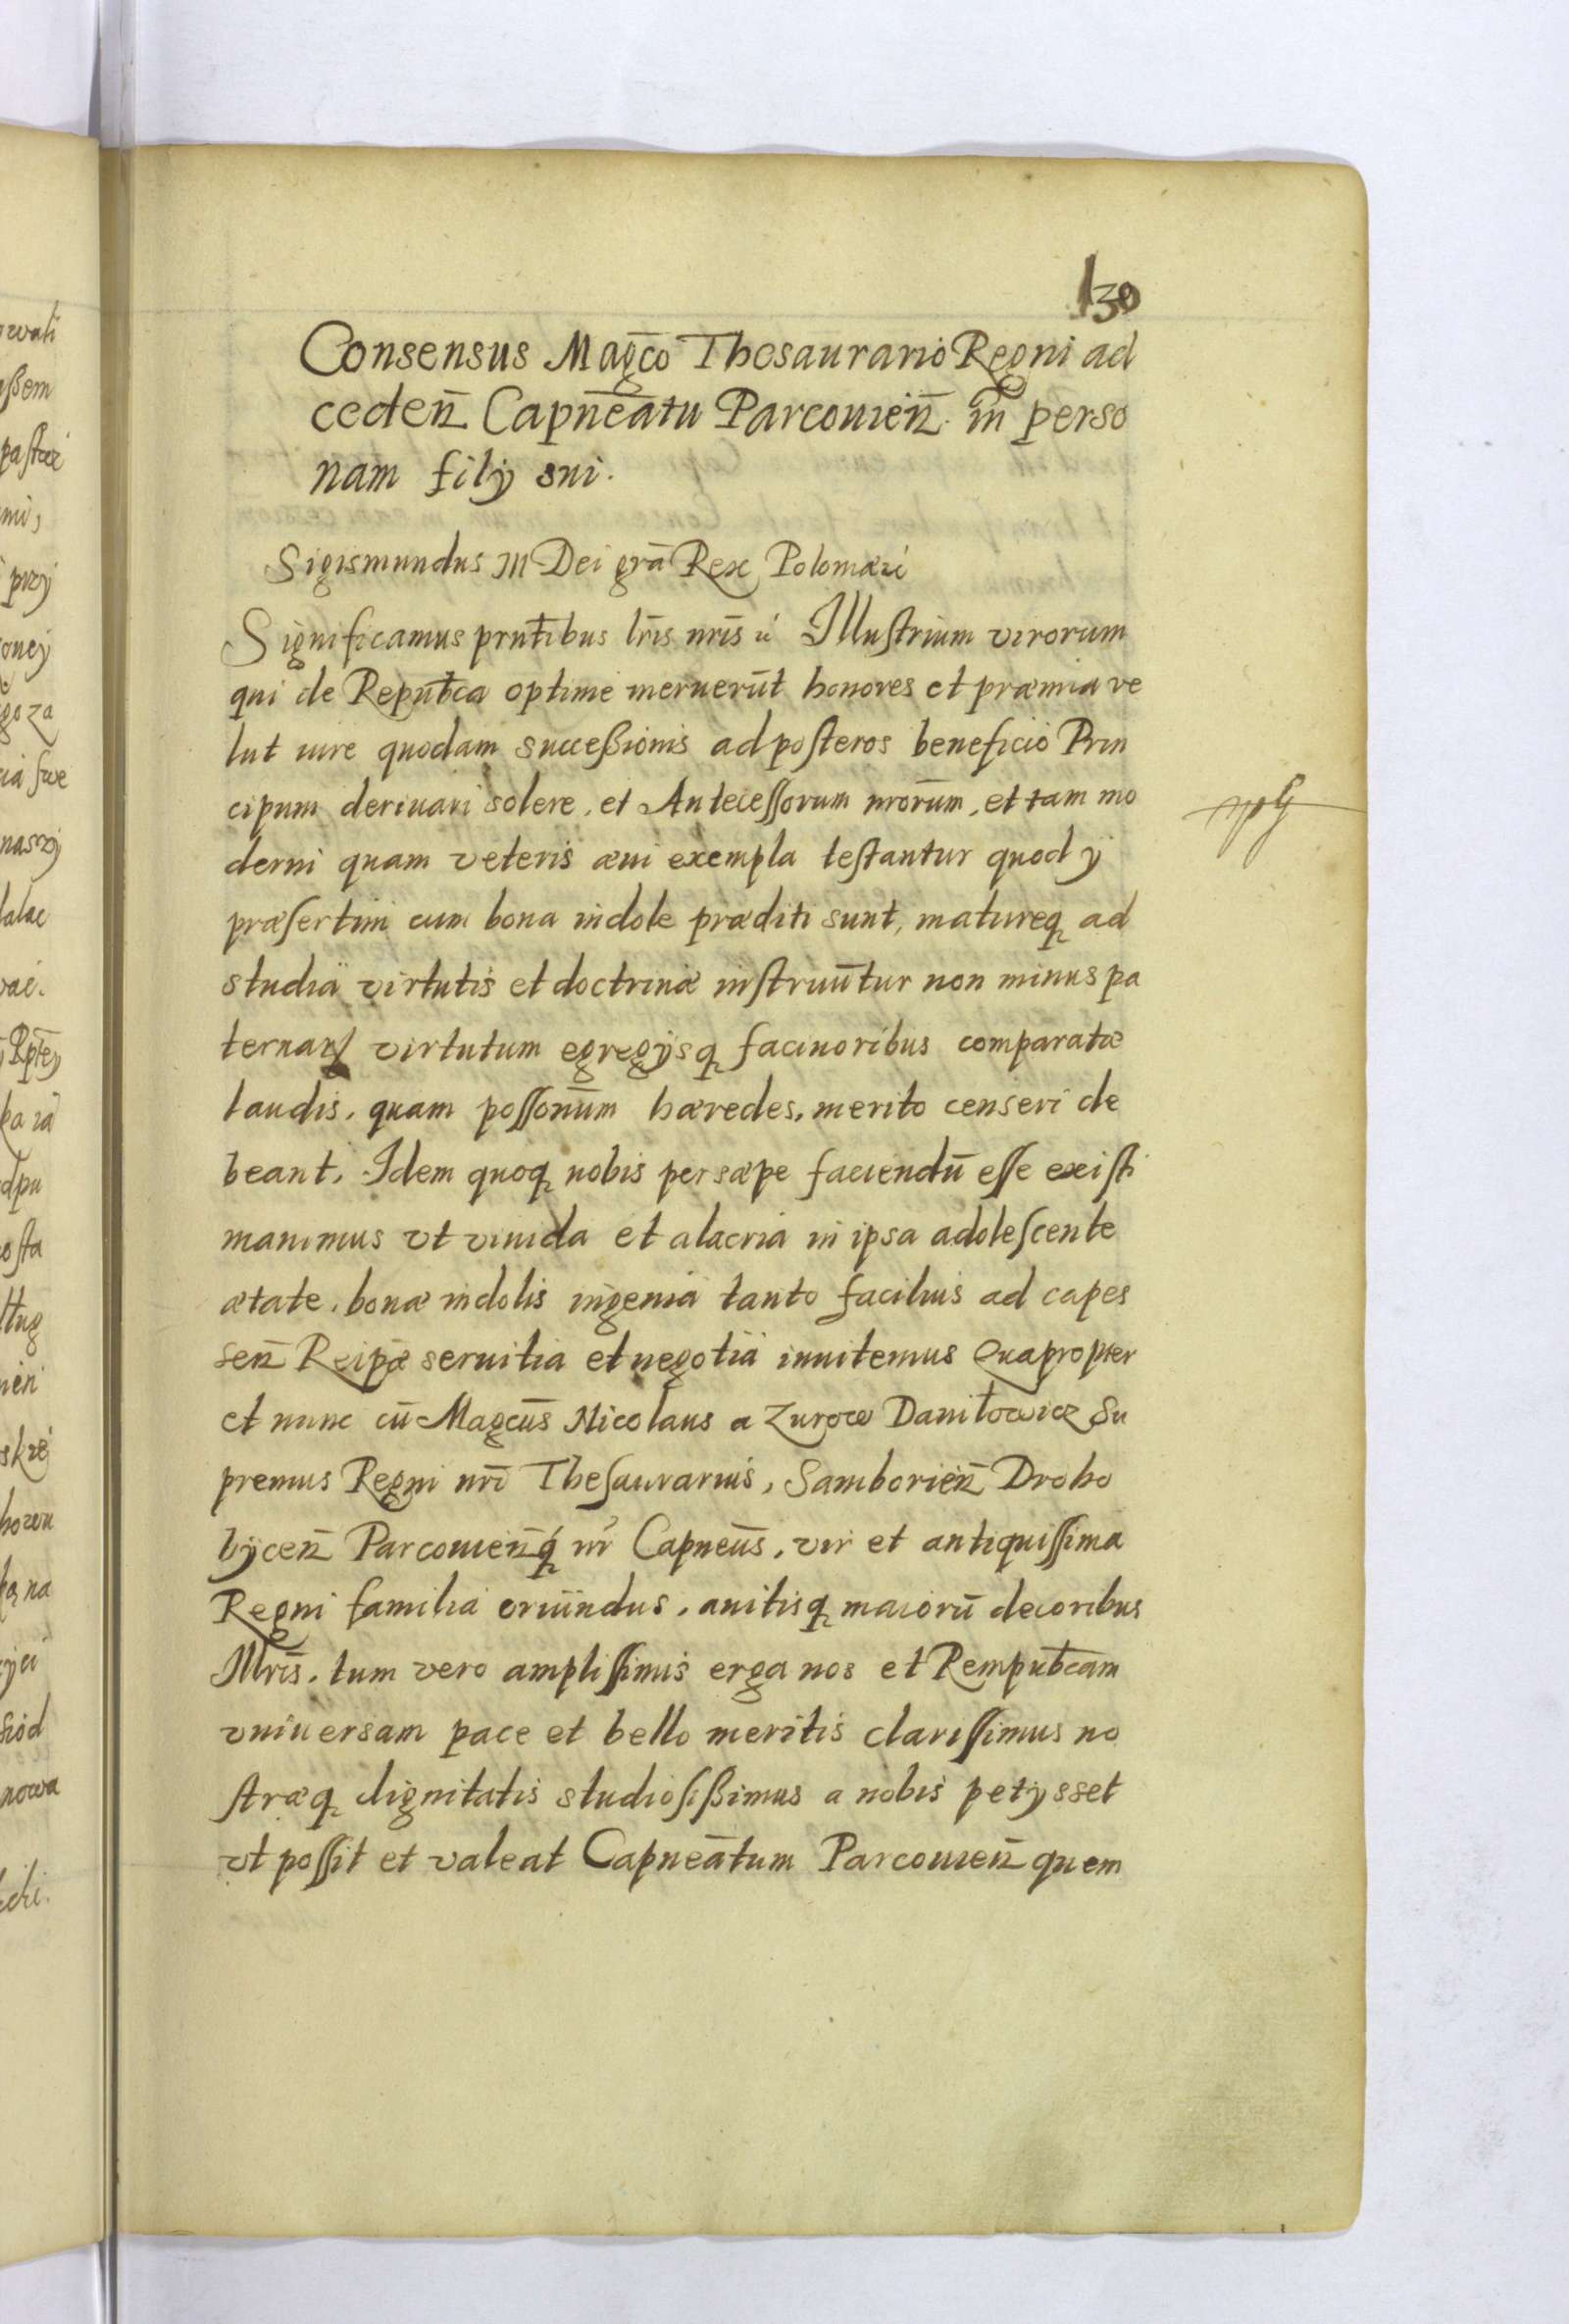 130
Consensus Magco Thesaurario Regni ad
ceden Capneatu Parcouien in perso
nam filij sui.
Sigismundus III Dei gra Rex Poloniæ
Significamus prntibus lris nris Illustrium virorum
qui de Republca optime meruerūt honores et præmia ve
lut iure quodam successionis ad posteros beneficio Prin
cipum deriuari solere, et Antecessorum nrorum, et tam mo
derni quam veteris æui exempla testantur quod ij
præsertim cum bona indole præditi sunt, matureq ad
studia virtutis et doctrinæ instruūtur non minus pa
ternarum virtutum egregijsq facinoribus comparatæ
laudis, quam possonum hæredes, merito censeri de
beant. Idem quoq nobis persæpe faciendū esse existi
mauimus vt viuida et alacria in ipsa adolescente
ætate, bonæ indolis ingenia tanto facilius ad capes
sen Reipæ seruitia et negotia inuitemus Quapropter
et nunc cū Magcus Nicolaus a Zurow Daniłowicz Su
premus Regni nri Thesaurarius, Samborien Droho
bycen Parcouienq nr Capneus, vir et antiquissima
Regni familia oriundus, auitisq maiorū decoribus
Illris, tum vero amplissimis erga nos et Rempublcam
vniuersam pace et bello meritis clarissimus no
stræq dignitatis studiosissimus a nobis petijsset
vt possit et valeat Capneatum Parcouien quem